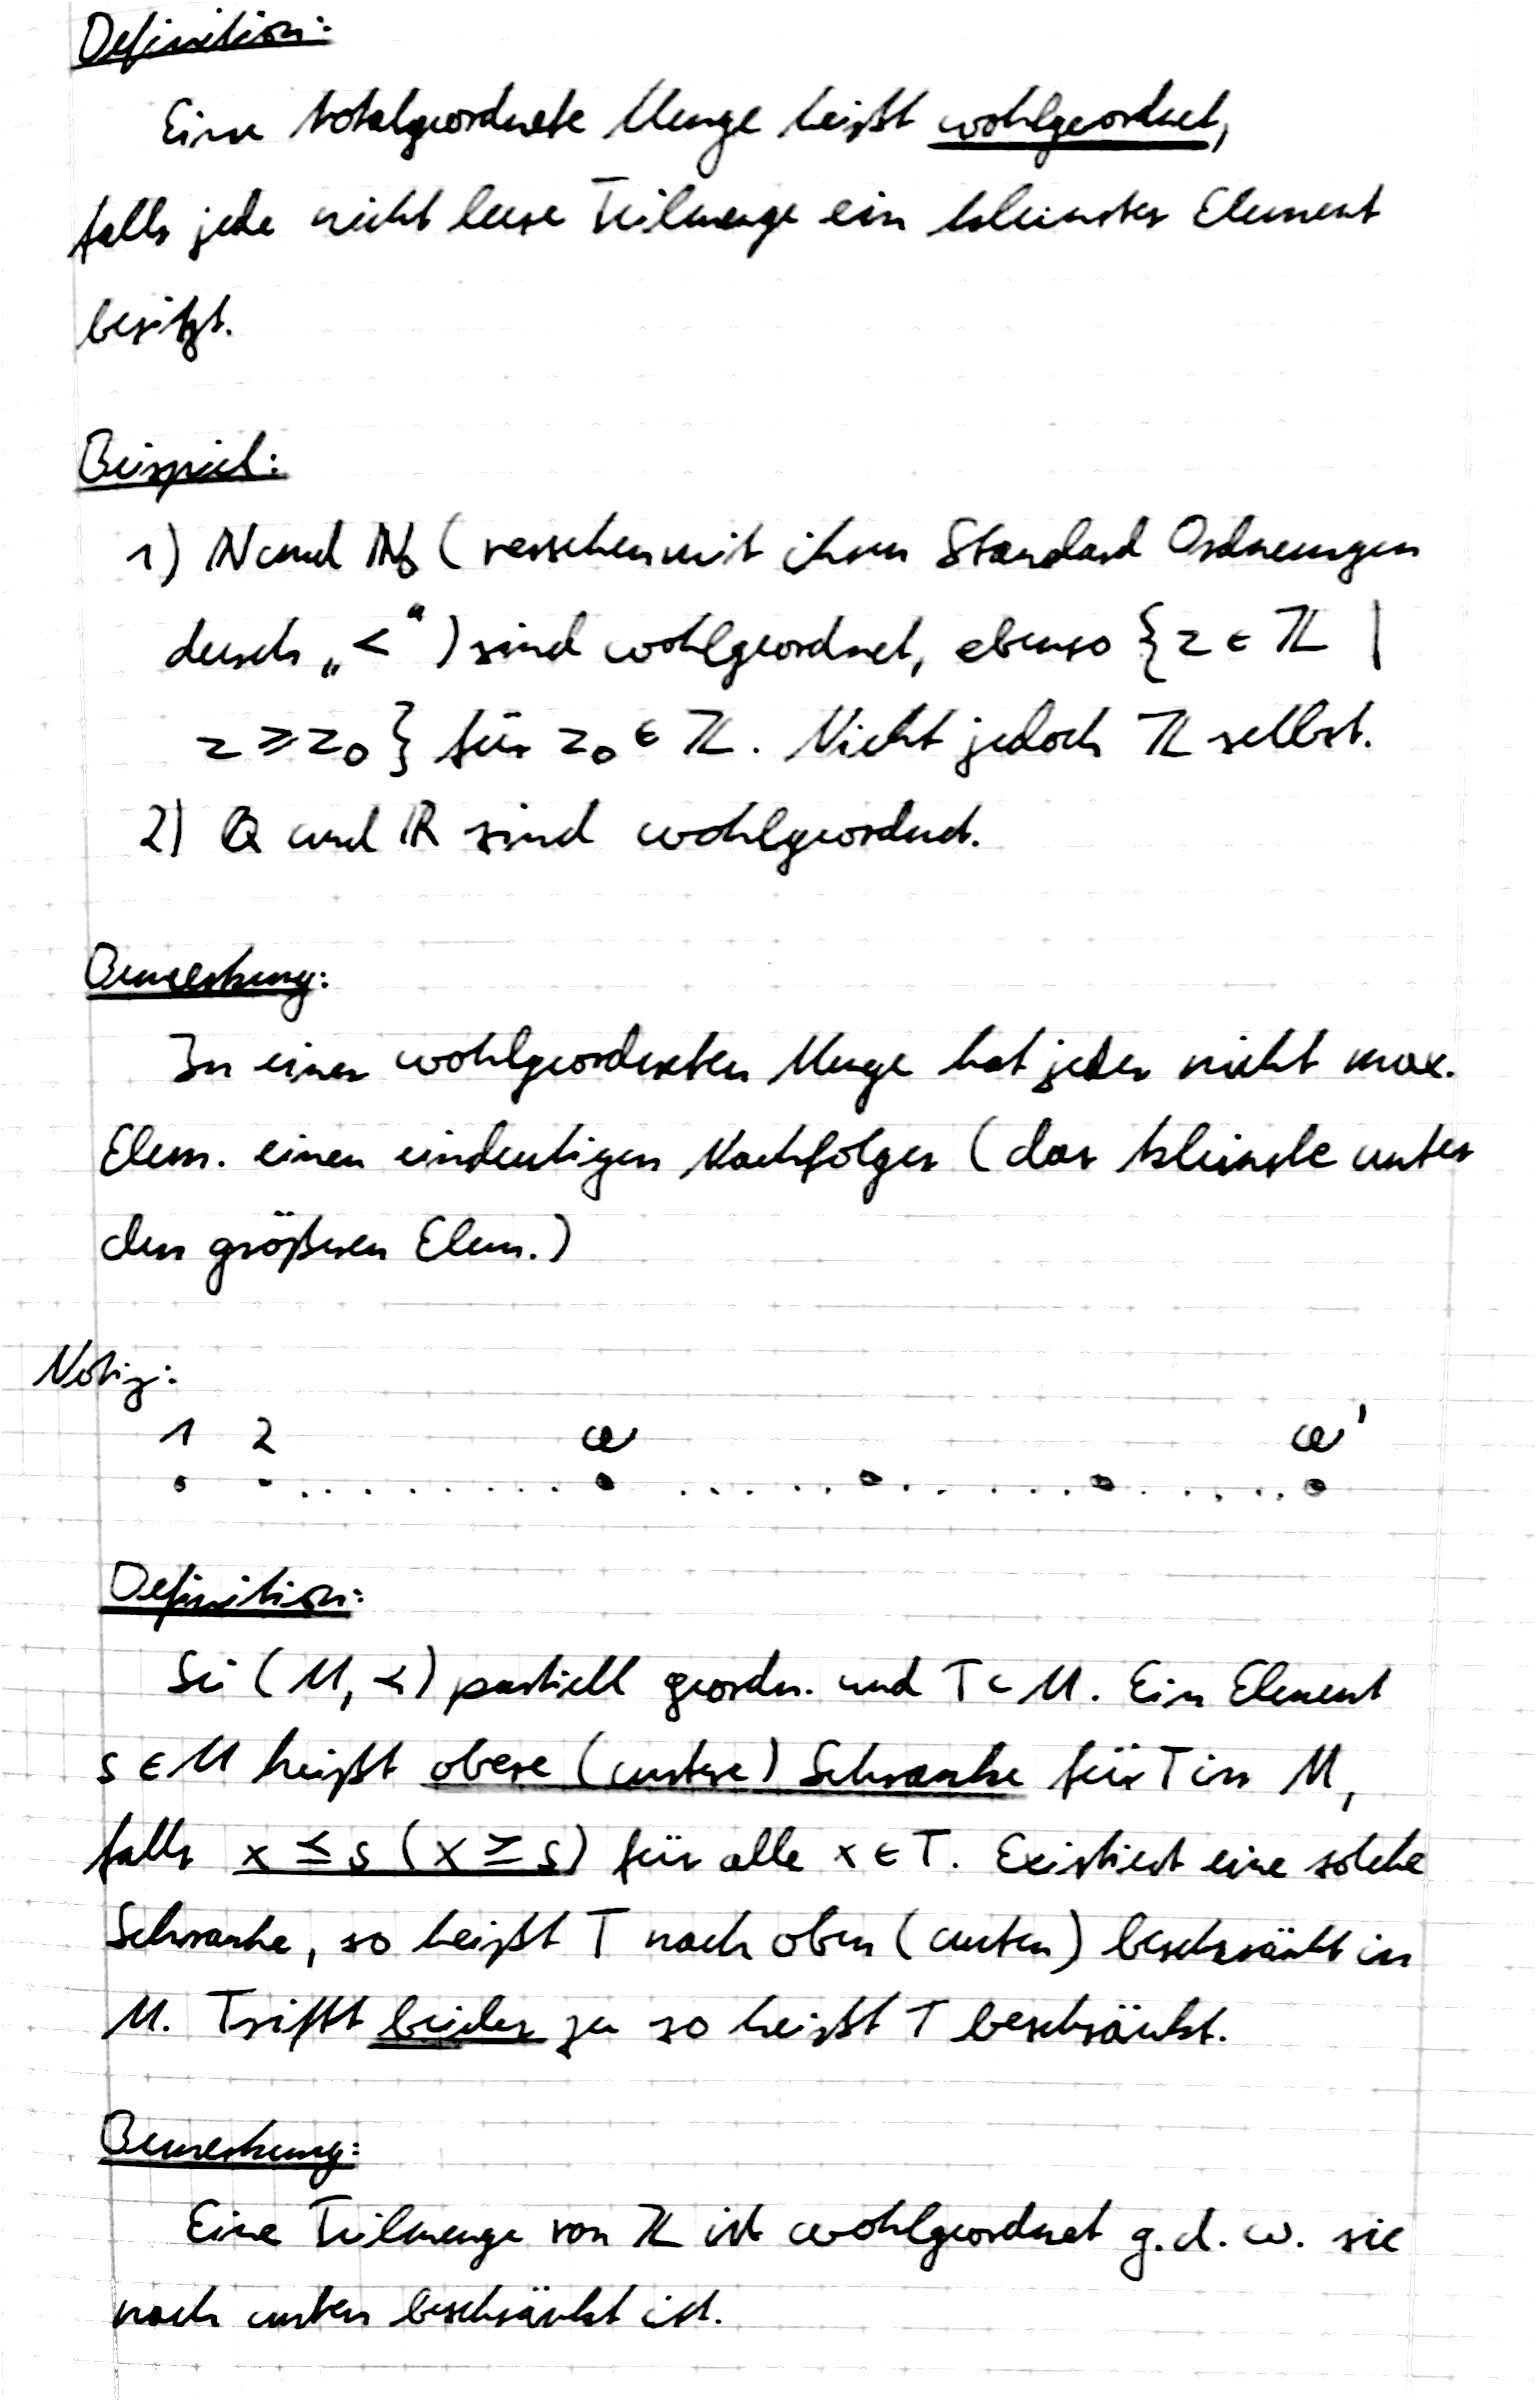 Definition:
Eine totalgeordnete Menge heißt wohlgeordnet,
falls jede nicht leere Teilmenge ein kleinstes Element
besitzt.
Beispiel:
1) ℕ und ℕ₀ (versehen mit ihren Standard Ordnungen
durch „<“) sind wohlgeordnet, ebenso {z ∈ ℤ |
z ≥ z₀} für z₀ ∈ ℤ. Nicht jedoch ℤ selbst.
2) ℚ und ℝ sind wohlgeordnet.
Bemerkung:
In einer wohlgeordneten Menge hat jedes nicht max.
Elem. einen eindeutigen Nachfolger (das kleinste unter
den größeren Elem.)
Notiz:
1 2 ω ω'
Definition:
Sei (M, ≺) partiell geordn. und T ⊂ M. Ein Element
s ∈ M heißt obere (untere) Schranke für T in M,
falls x ≤ s (x ≥ s) für alle x ∈ T. Existiert eine solche
Schranke, so heißt T nach oben (unten) beschränkt in
M. Trifft beides zu so heißt T beschränkt.
Bemerkung:
Eine Teilmenge von ℤ ist wohlgeordnet g.d.w. sie
nach unten beschränkt ist.